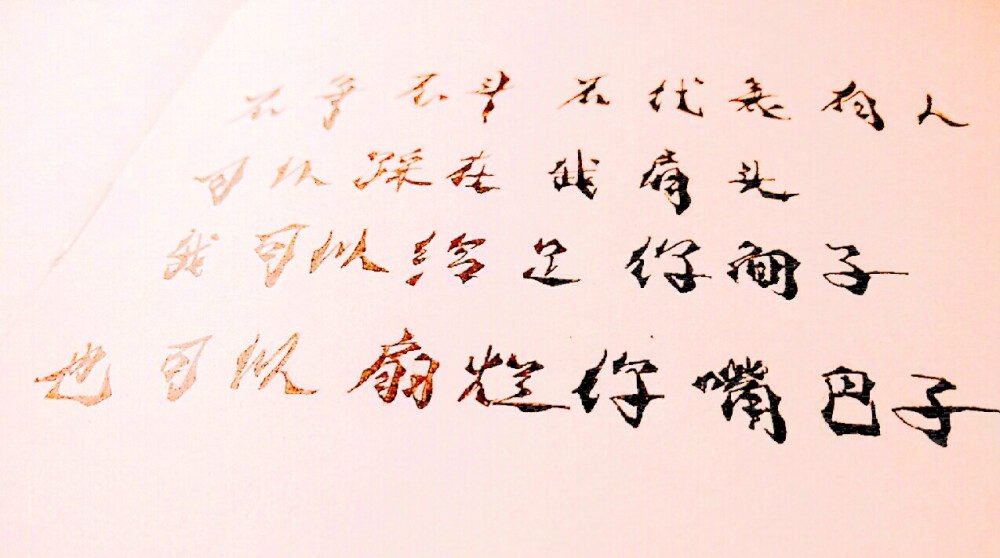 不争不斗 不代表狗人
可以踩在我肩头
我可以给足你面子
也可以扇烂你嘴巴子